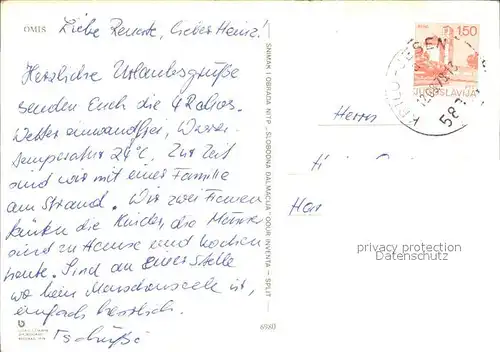 OMIS
Liebe Renate, lieber Heinz!
Herzliche Urlaubsgrüße
senden Euch die 4
Wetter einwandfrei, Wasser-
temperatur 24°C. Zur Zeit
sind wir mit einer Familie
am Strand. Wir zwei Frauen
hüten die Kinder, die Männer
sind zu Hause und kochen
heute. Sind an einer Stelle
wo kein Menschenseele ist,
einfach herrlich.
Tschüßi
SNIMAK I OBRADA NITP - SLOBODNA DALMACIJA - ODJR INVENTA - SPLIT
6980
1,50
JUGOSLAVIJA
Herrn
H
Har
privacy protection
Datenschutz